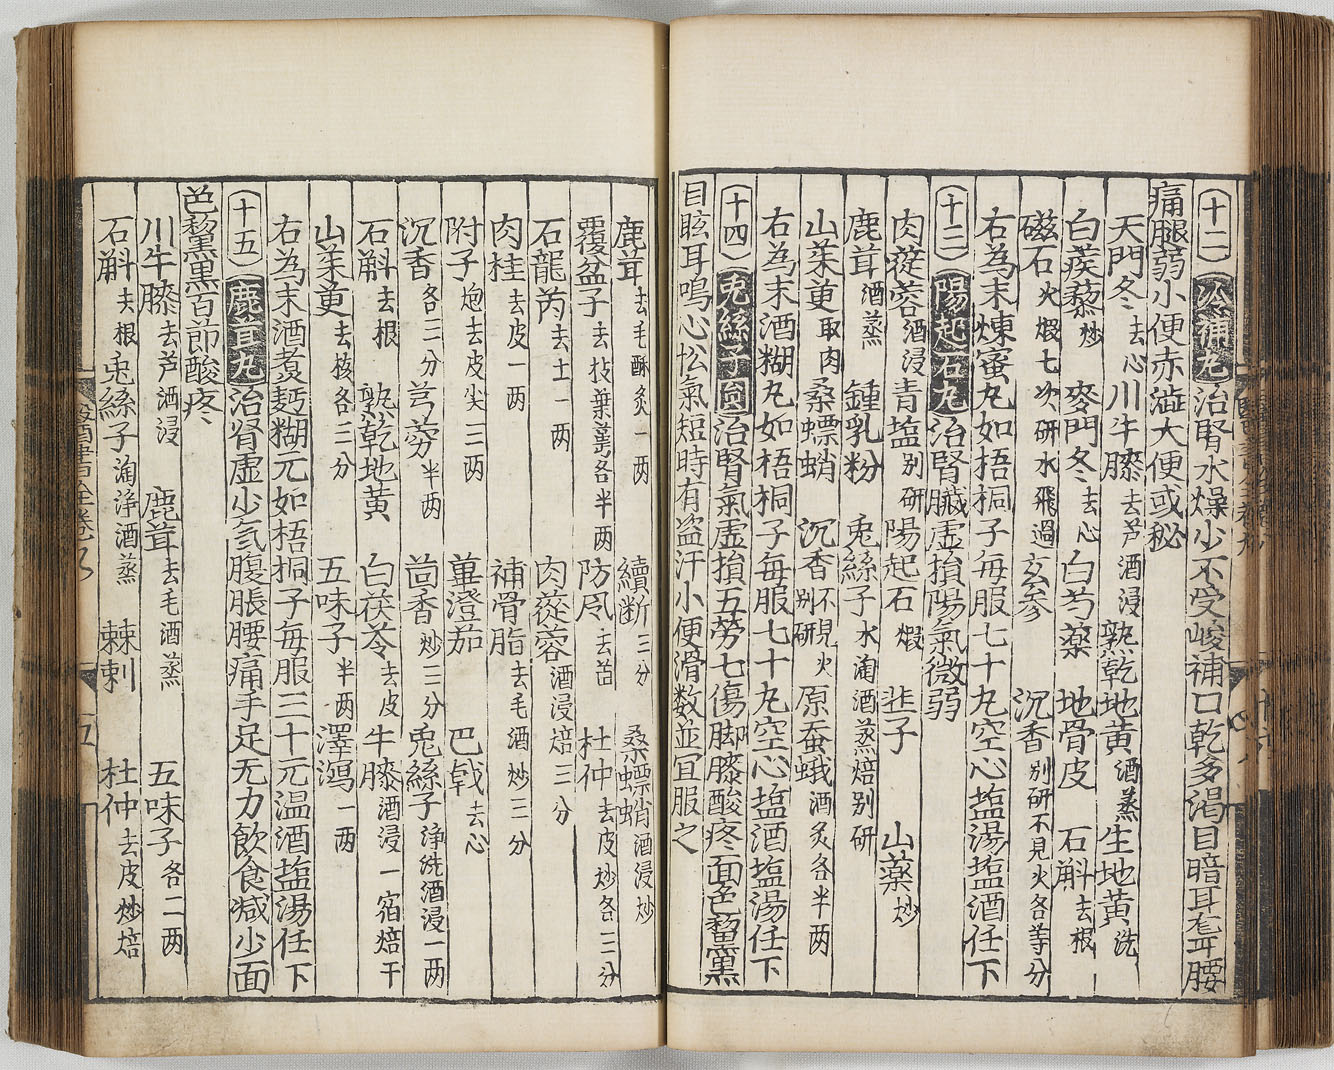 〔十二〕〔冷補丸〕治腎水燥少不受峻補口乾多渴目暗耳聾腰
痛腿弱小便赤澁大便或秘
天門冬去心 川牛膝去芦酒浸 熟乾地黄酒蒸 生地黄洗
白蒺藜炒 麥門冬去心 白芍薬 地骨皮 石斛去根
磁石火煅七次研水飛過 玄参 沉香别研不見火各等分
右為末煉蜜丸如梧桐子每服七十丸空心塩湯塩酒任下
〔十三〕〔陽起石丸〕治腎臓虚損陽氣微弱
肉蓯蓉酒浸 青塩别研 陽起石煅 韭子 山薬炒
鹿茸酒蒸 鍾乳粉 兎絲子水淘酒蒸焙别研
山茱萸取肉 桑螵蛸 沉香不見火别研 原蚕蛾酒炙各半两
右為末酒糊丸如梧桐子每服七十丸空心塩酒塩湯任下
〔十四〕〔兎絲子圓〕治腎氣虚損五劳七傷脚膝酸疼面色黧黑
目眩耳鳴心忪氣短時有盗汗小便滑数並宜服之
鹿茸去毛酥炙一两 續断三分 桑螵蛸酒浸炒
覆盆子去枝葉萼各半两 防风去苗 杜仲去皮炒各三分
石龍芮去土一两 肉蓯蓉酒浸焙三分
肉桂去皮一两 補骨脂去毛酒炒三分
附子炮去皮尖一两 蓽澄茄 巴戟去心
沉香各三分 芎藭半两 茴香炒三分 兎絲子净洗酒浸一两
石斛去根 熟乾地黄 白茯苓去皮 牛膝酒浸一宿焙干
山茱萸去核各三分 五味子半两 澤瀉一两
右為末酒煑麪糊元如梧桐子每服三十元温酒塩湯任下
〔十五〕〔鹿茸丸〕治肾虚少氣腹脹腰痛手足无力飲食減少面
色黧黑百節酸疼
川牛膝去芦酒浸 鹿茸去毛酒蒸 五味子各二两
石斛去根 兎絲子淘浄酒蒸 棘刺 杜仲去皮炒焙